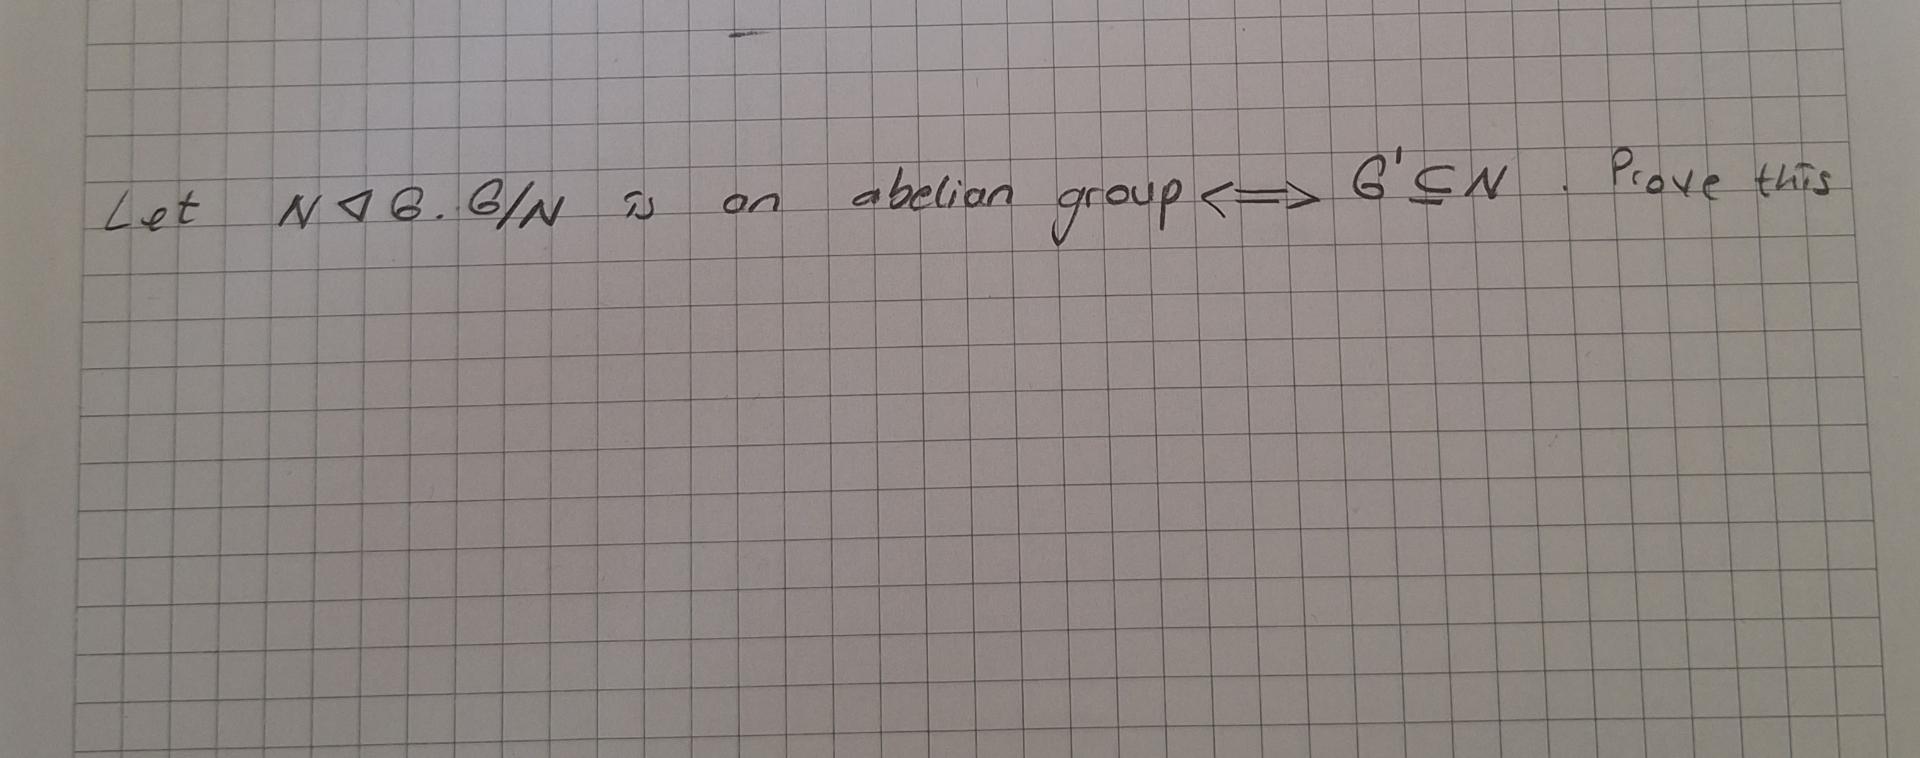 Let N ◁ G. G/N is an abelian group <=> G' ⊆ N. Prove this